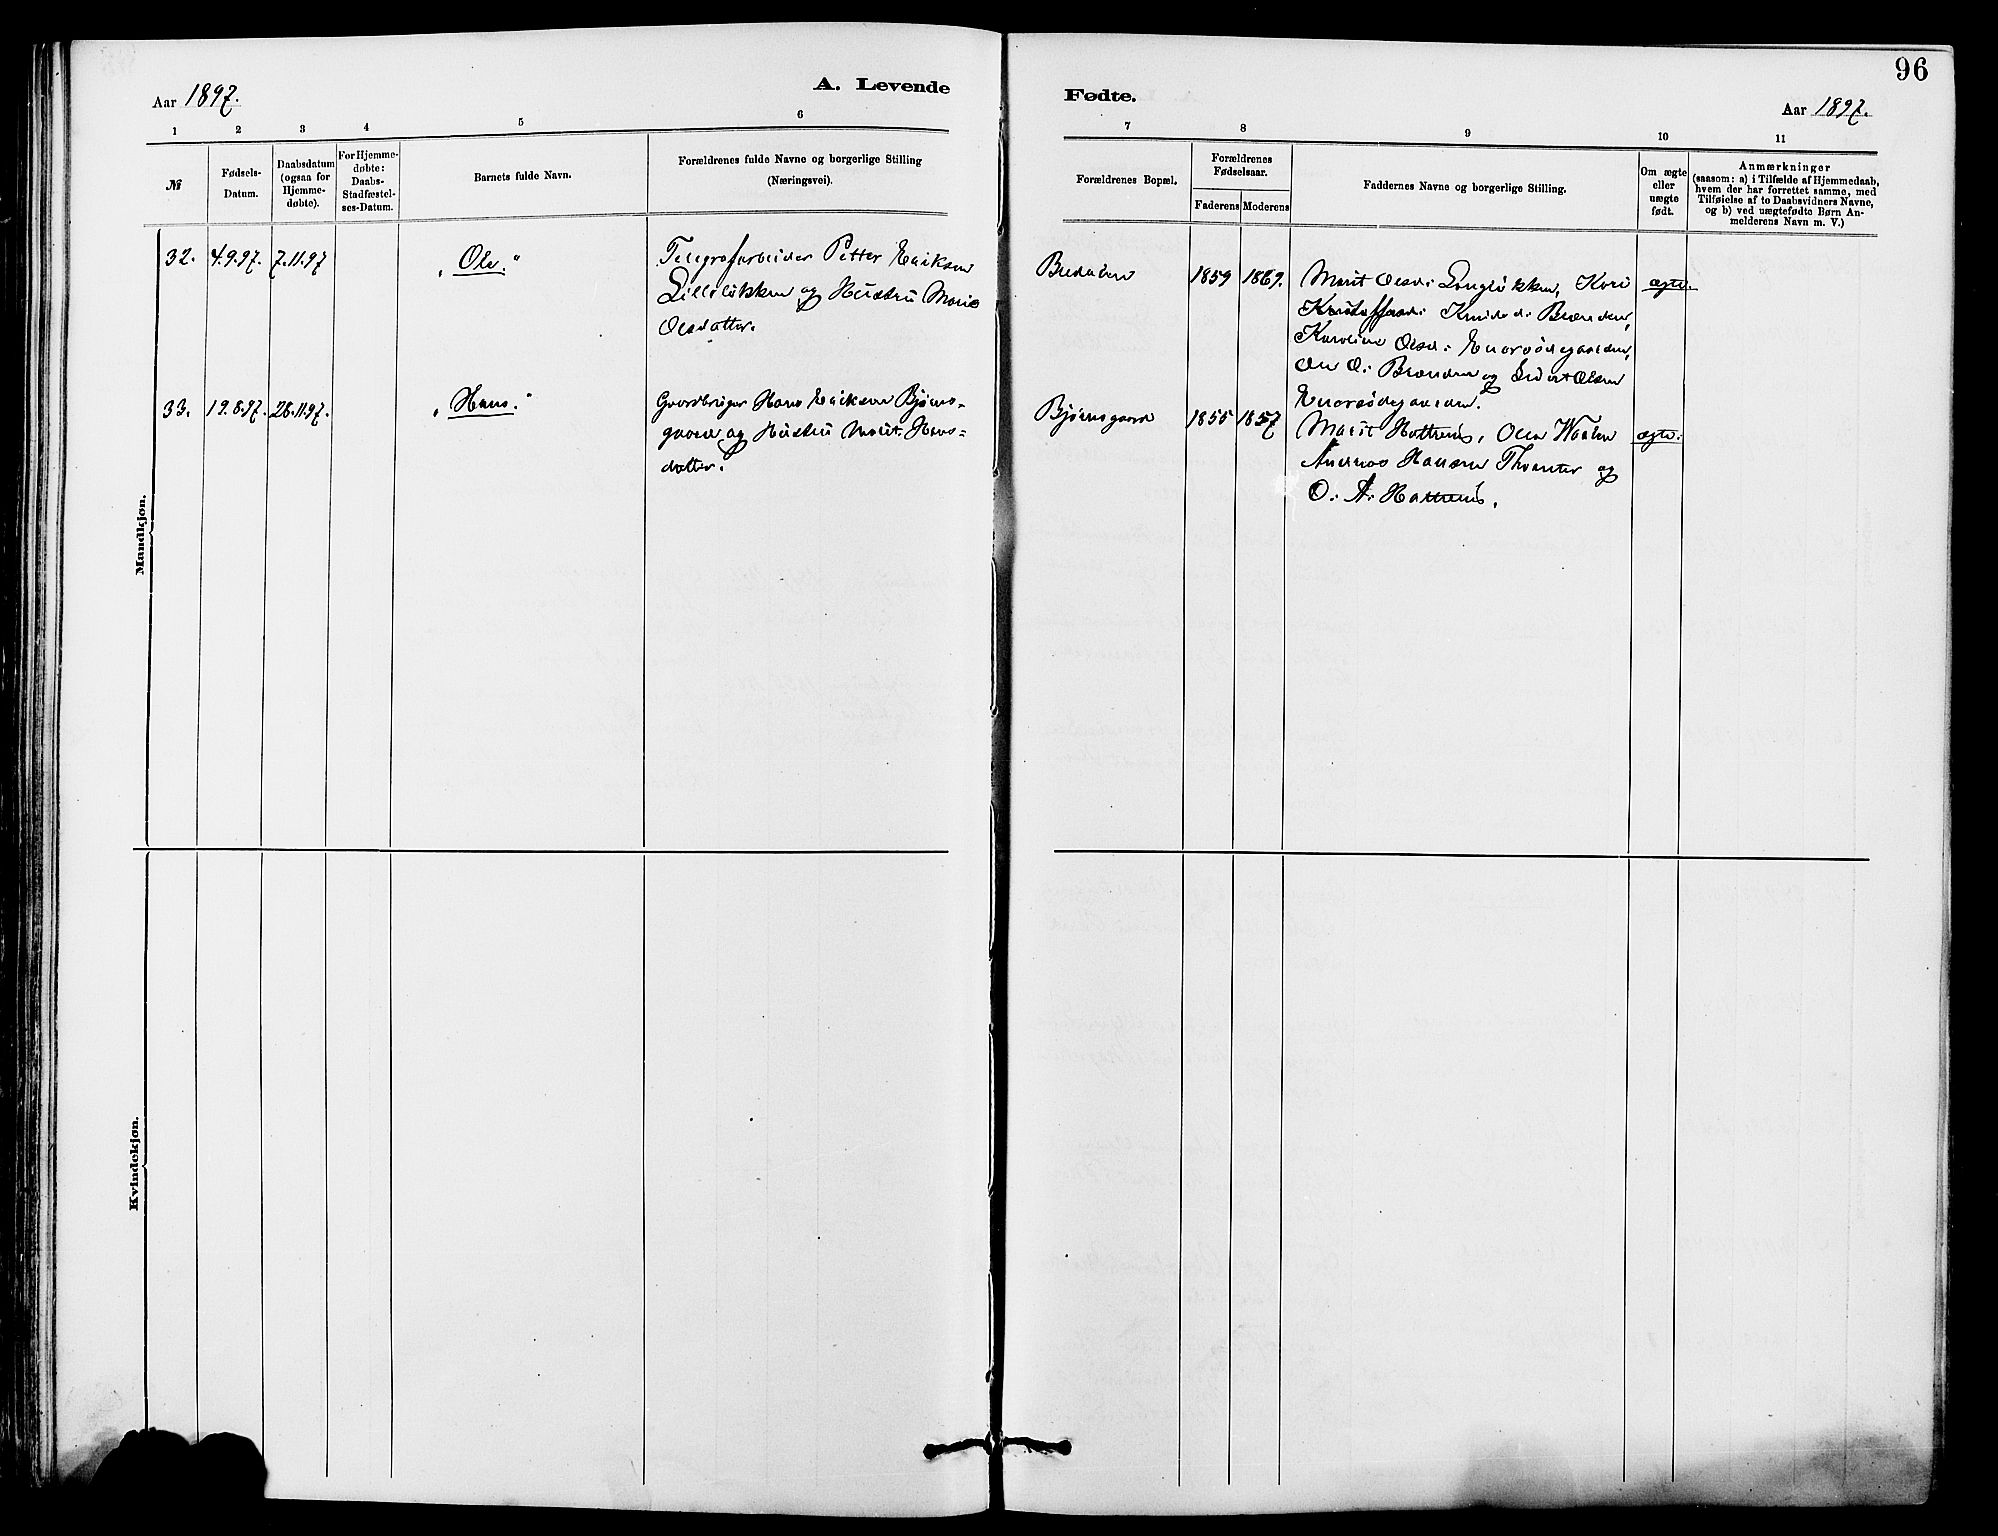 96
Aar 1897.
A. Levende
Fødte.
Aar 1897.
1 2 3 4 5 6 7 8 9 10 11
№
Fødsels-
Datum.
Daabsdatum
(ogsaa for
Hjemme-
døbte).
For Hjemme-
døbte:
Daabs-
Stadfæstel-
ses-Datum.
Barnets fulde Navn.
Forældrenes fulde Navne og borgerlige Stilling
(Næringsvei).
Forældrenes Bopæl.
Forældrenes
Fødselsaar.
Faderens Moderens
Faddernes Navne og borgerlige Stilling.
Om ægte
eller
uægte
født.
Anmærkninger
(saasom: a) i Tilfælde af Hjemmedaab,
hvem der har forrettet samme, med
Tilføielse af to Daabsvidners Navne,
og b) ved uægtefødte Børn An-
melderens Navn m. V.)
Mandkjøn.
32. 4.9.97. 7.11.97
„Ole.“
Telegrafarbeider Petter Eriksen
Lilleløkken og Hustru Mari
Olsdatter.
1859 1869.
Marit Olsd: Longløkken, Kari
Kristoffersd: Knudsd:
Karoline Olsd:
og Sivert Olsen
ægte.
33. 19.8.97. 28.11.97.
„Hans.“
Gaardbruger Hans Eriksen Bjørns-
gaard og Hustru Marit Hans-
datter.
Bjørnsgaard
1855 1857
Marit Hattrems, Olea
Andreas Hansen og
O. A. Hattrems.
ægte.
Kvindekjøn.